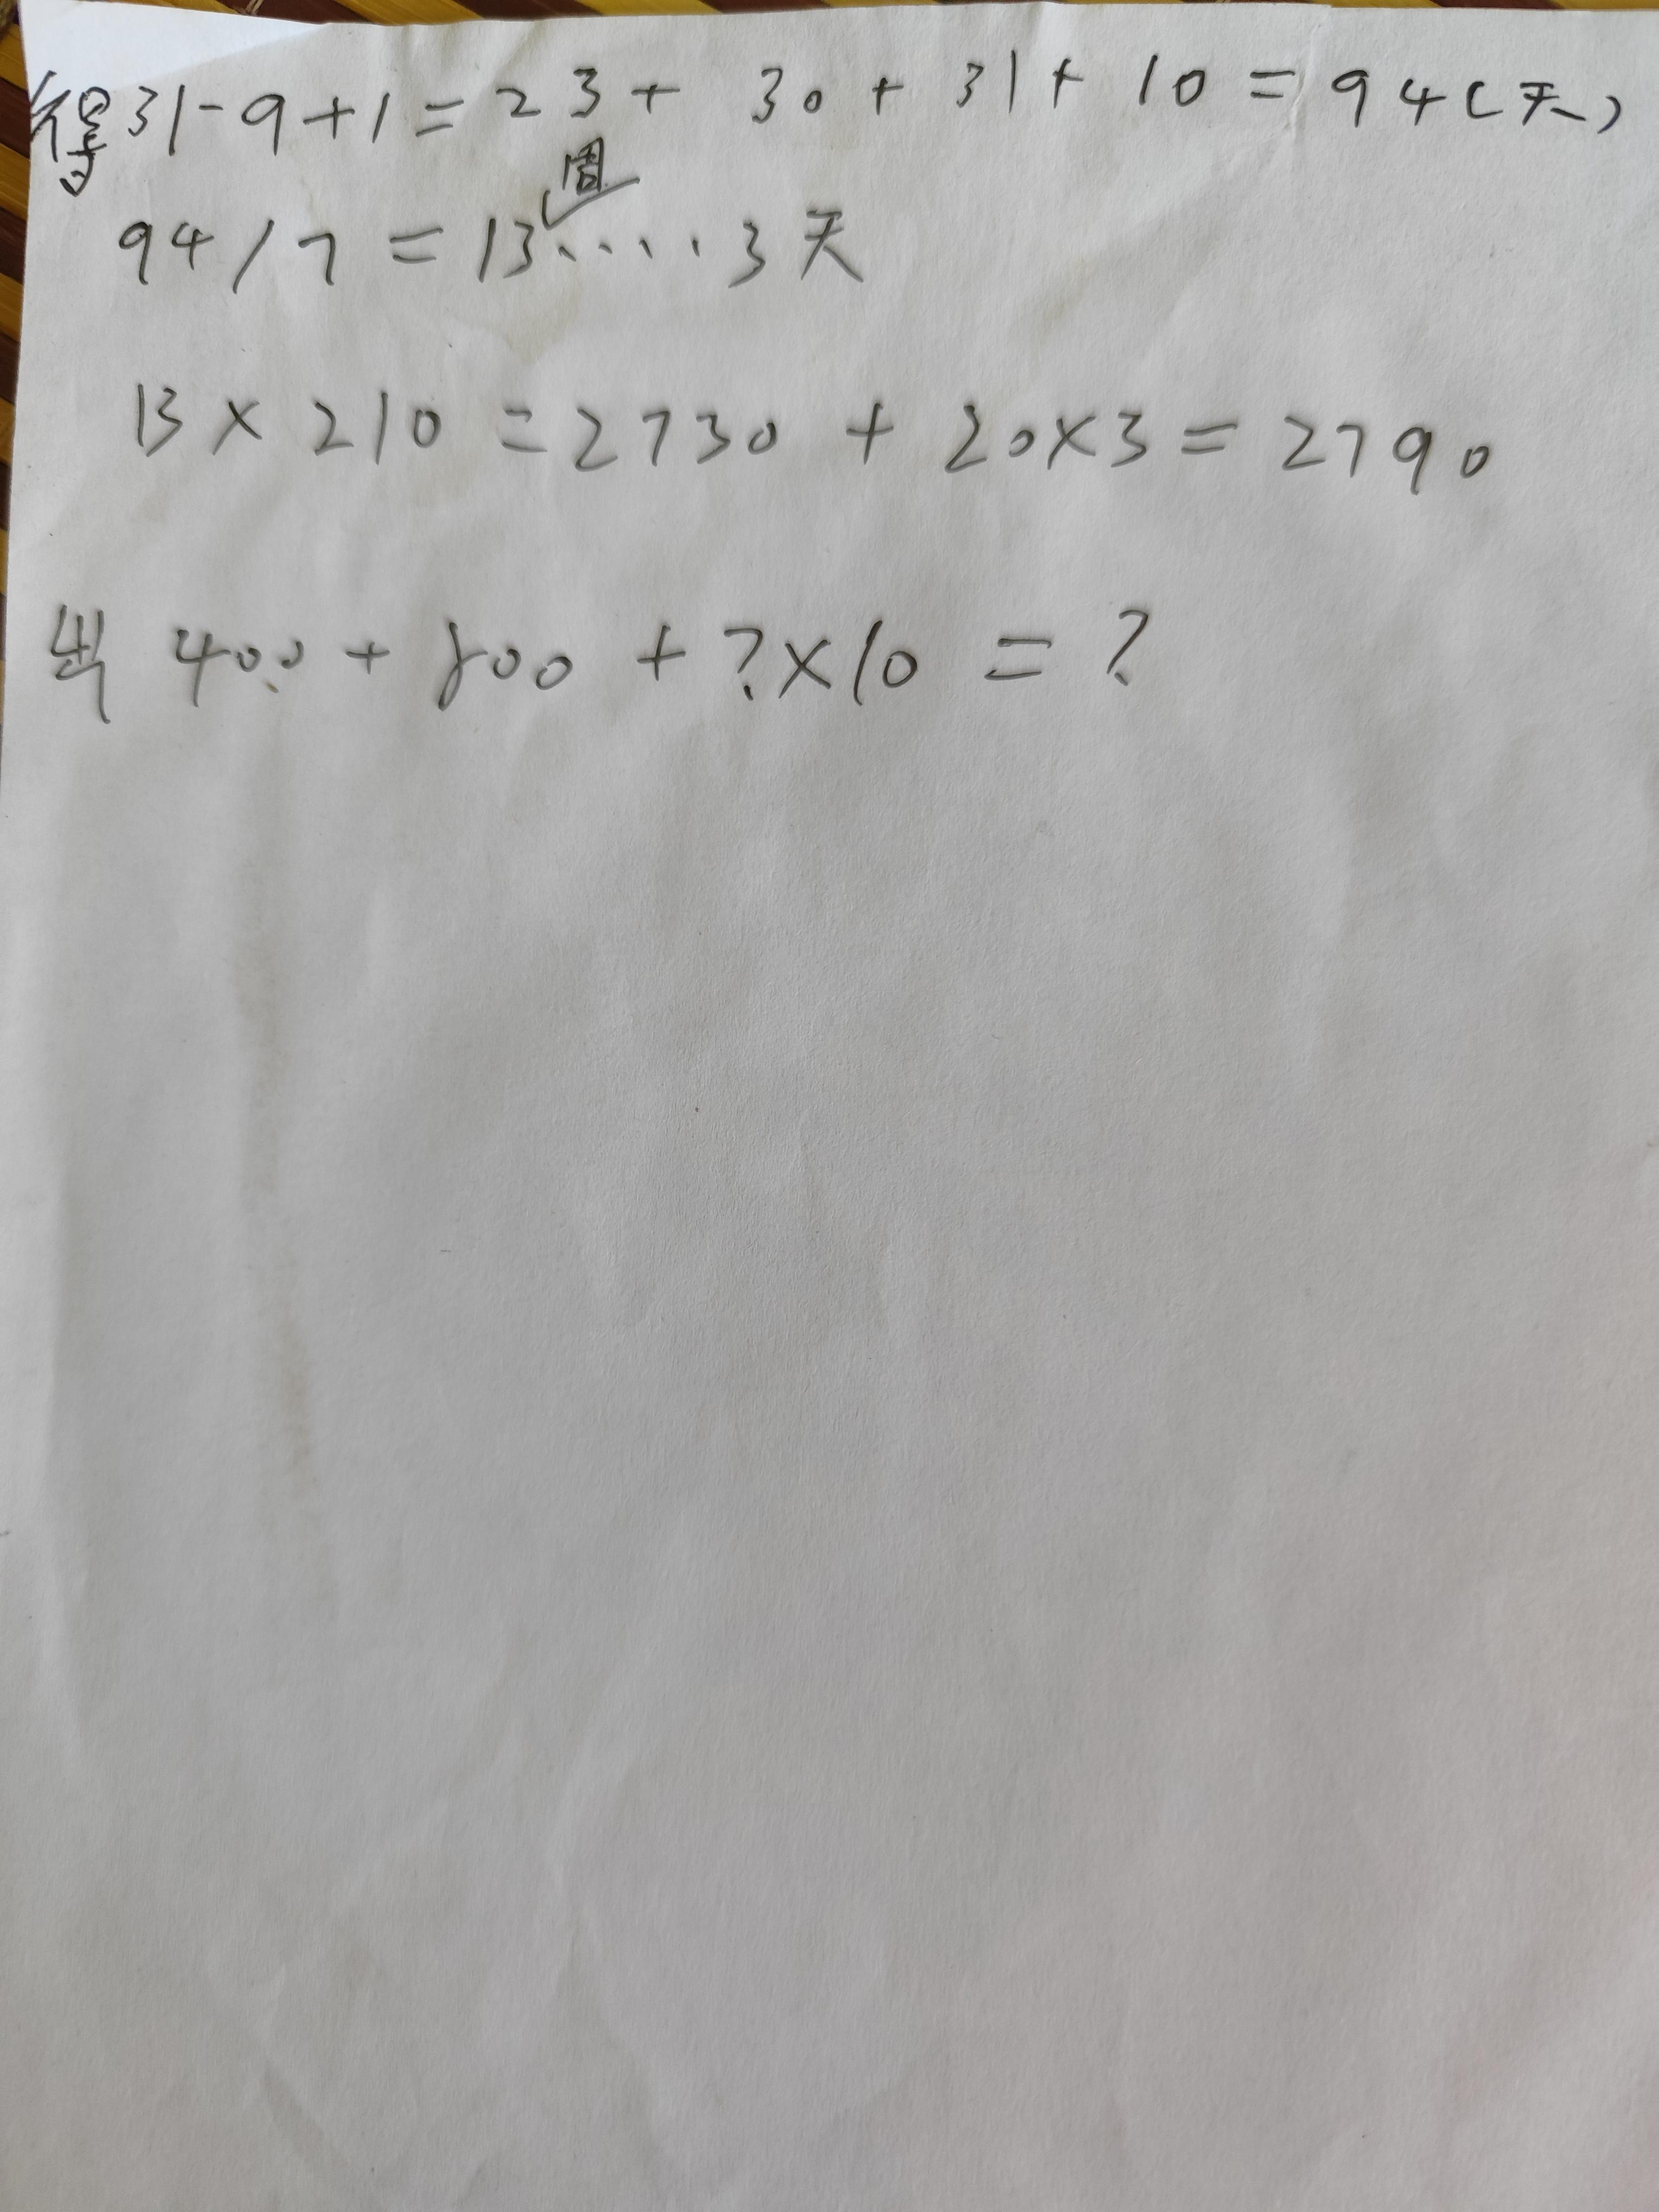 得31-9+1=23+ 30+31+10=94(天)
周
94/7=13.....3天
13×210=2730+20×3=2790
出 400+800+?×10=?